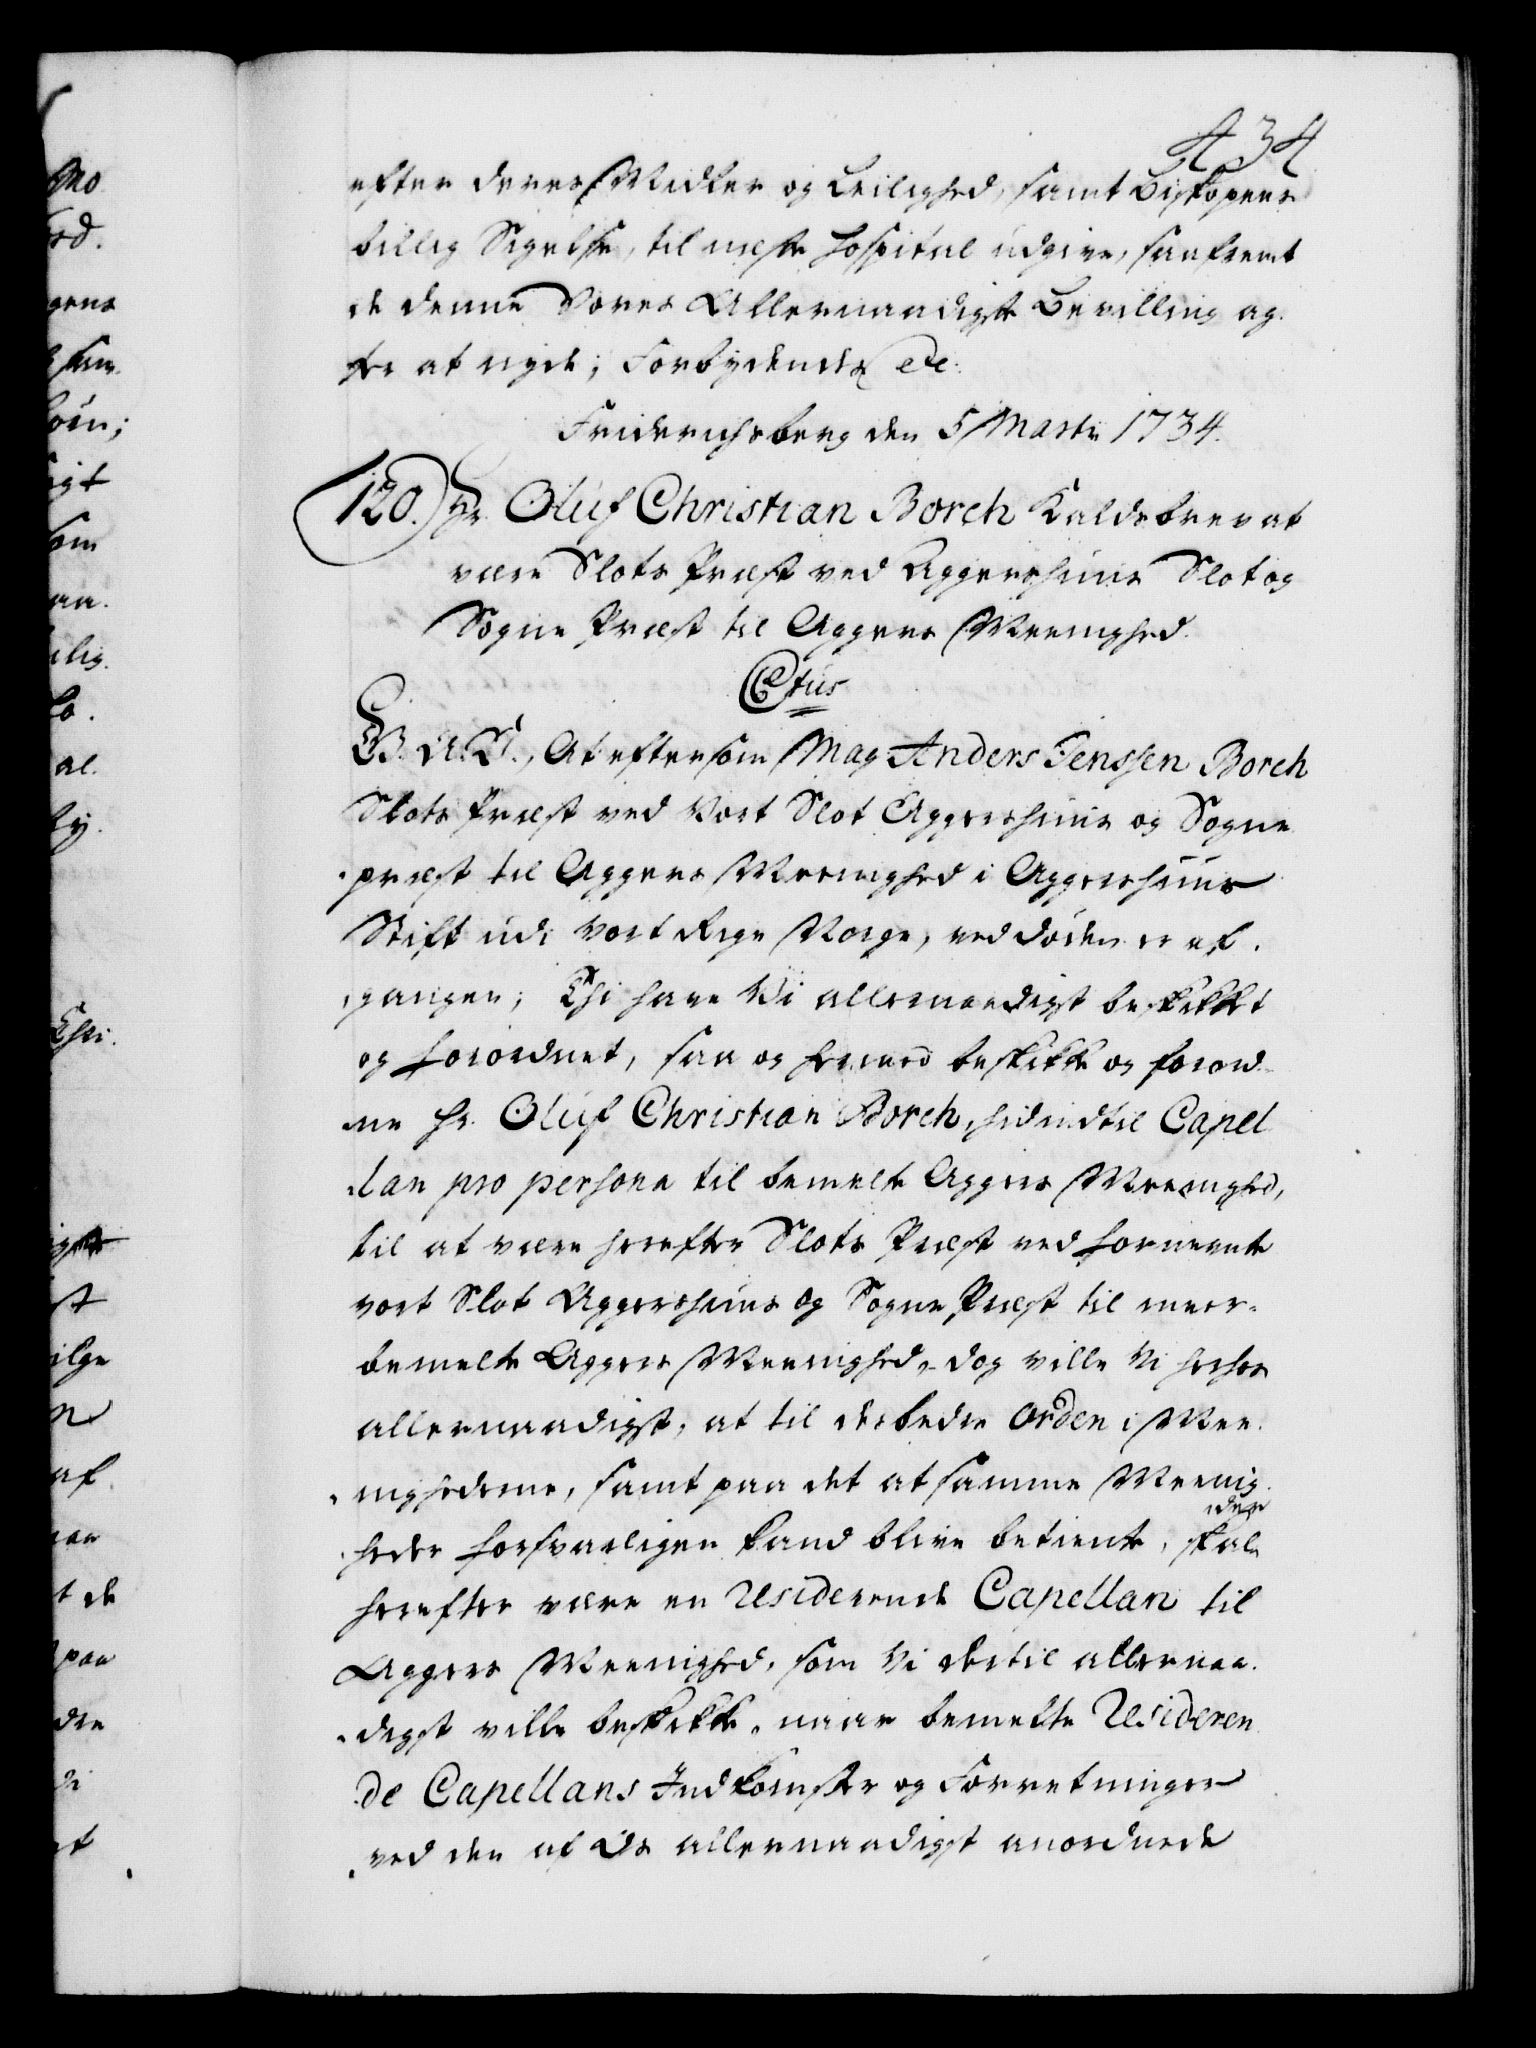 434
efter deres Midler og Leilighed, samt Biskopens
billig Sigelse, til neste Hospital udgive, saafremt
de denne Vores Allernaadigste Bevilling ag-
te at nyde; Forbydendes etc.
Friderichsberg den 5 Martii 1734.
120. Hr. Oluf Christian Borch Kaldsbrev at
være Slots Præst ved Aggershuus Slot og
Sogne Præst til Aggers Meenighed.
C 6tus
G. A. V., At eftersom Mag. Anders Jenssen Borch
Slots Præst ved Vort Slot Aggershuus og Sogne
præst til Aggers Meenighed i Aggershuus
Stift udi Vort Rige Norge, ved døden er af-
gangen; Thi have Vi allernaadigst beskikket
og forordnet, saa og hermed beskikke og forord-
ne Hr. Oluf Christian Borch, hidindtil Capel
lan pro persona til bemelte Aggers Meenighed,
til at være herefter Slots Præst ved fornevnte
vort Slot Aggershuus og Sogne Præst til meer-
bemelte Aggers Meenighed, dog ville Vi herhos
allernaadigst, at til des bedre Orden i Mee-
nighederne, samt paa det at samme Meenig-
heder forsvarligen kand blive betient, skal der
herefter være en residerende Capellan til
Aggers Meenighed, som Vi dertil allernaa-
digst ville beskikke, naar bemelte Resideren
de Capellans Indkomster og Forretninger
ved den af Os allernaadigst anordnede